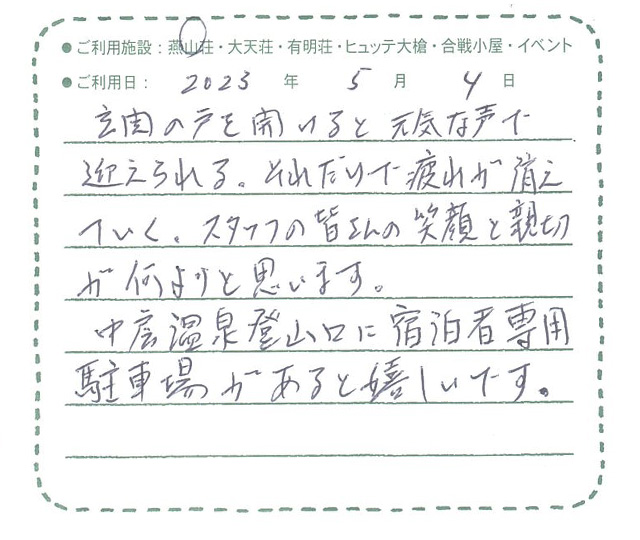 ● ご利用施設：燕山荘・大天荘・有明荘・ヒュッテ大槍・合戦小屋・イベント
● ご利用日： 2023 年 5 月 4 日
玄関の戸を開けると元気な声で
迎えられる。それだけで疲れが消え
ていく。スタッフの皆さんの笑顔と親切
が何よりと思います。
中房温泉登山口に宿泊者専用
駐車場があると嬉しいです。